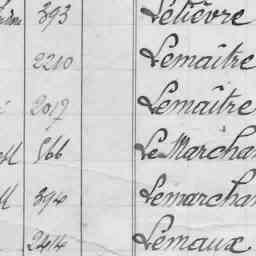 393 Lelièvre
2210 Lemaître
2019 Lemaître
566 Le Marcha
394 Lemarcha
2414 Lemaux